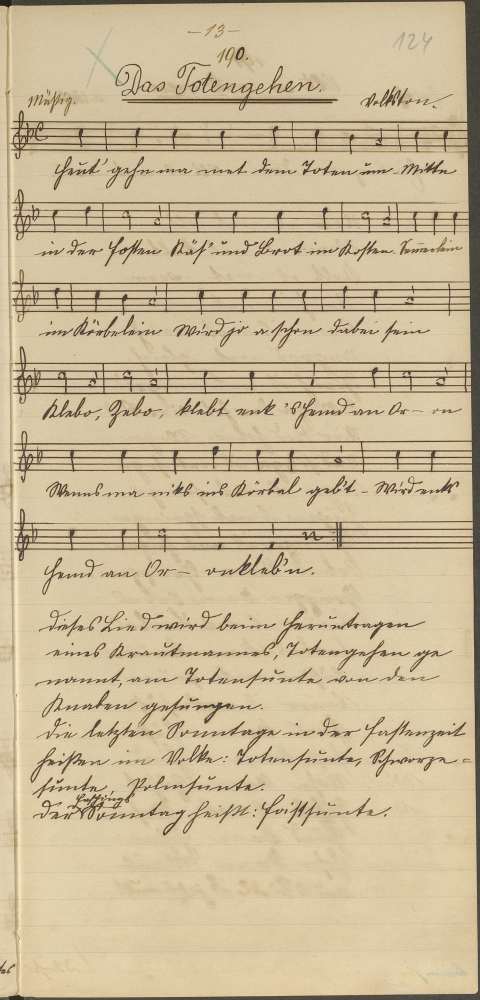 -13-
124
190.
Das Totengehen.
Mäßig.
Volkston.
Heut' gehn ma met dem Toten um - Mitte
in der Fosten Käs' und Brot im Kosten. Semmerlein
im Körbelein Wird jo a schon dabei sein
Klebo, Zebo, klebt enk 's Hemd an Or- on
Wenns ma niks ins Körbel gebt - Wird enks
Hemd an Or- onkleb'n.
Dieses Lied wird beim Herumtragen
eines Krautmannes, Totengehen ge
nannt, am Totensunte von den
Knaben gesungen.
Die letzten Sonntage in der Fastenzeit
heißen im Volke: Totensunte, Schworze-
sunte, Polmsunte.
Faschings
Der Sonntag heißt: Foistsunte.